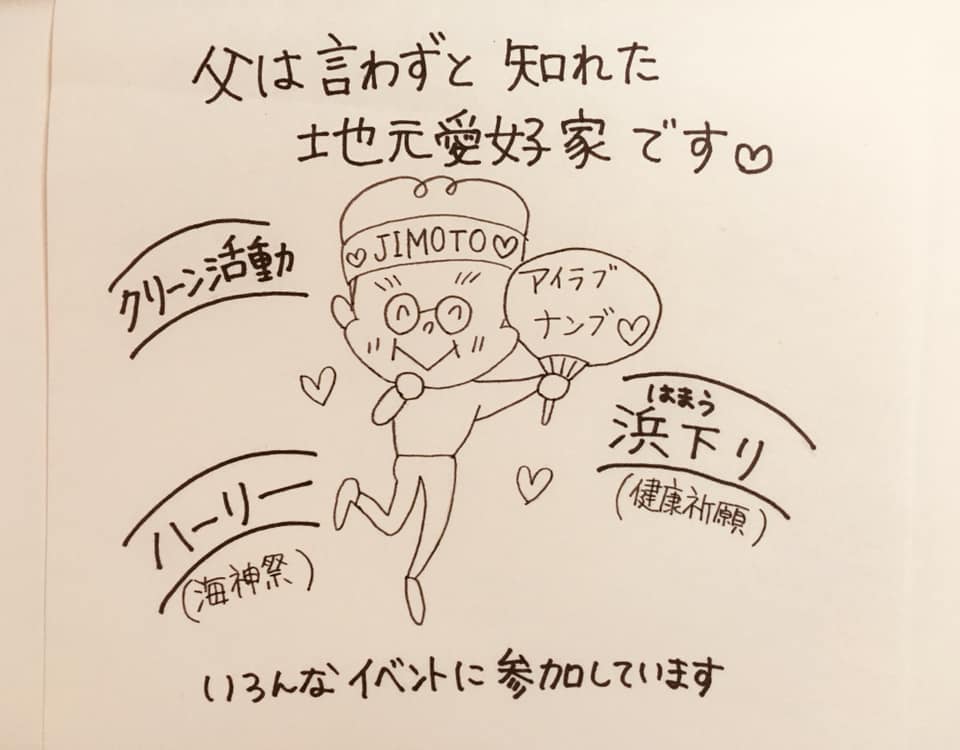 父は言わずと知れた
地元愛好家です♡
♡JIMOTO♡
アイラブ
ナンブ♡
クリーン活動
はまう
浜下り
(健康祈願)
ハーリー
(海神祭)
いろんなイベントに参加しています